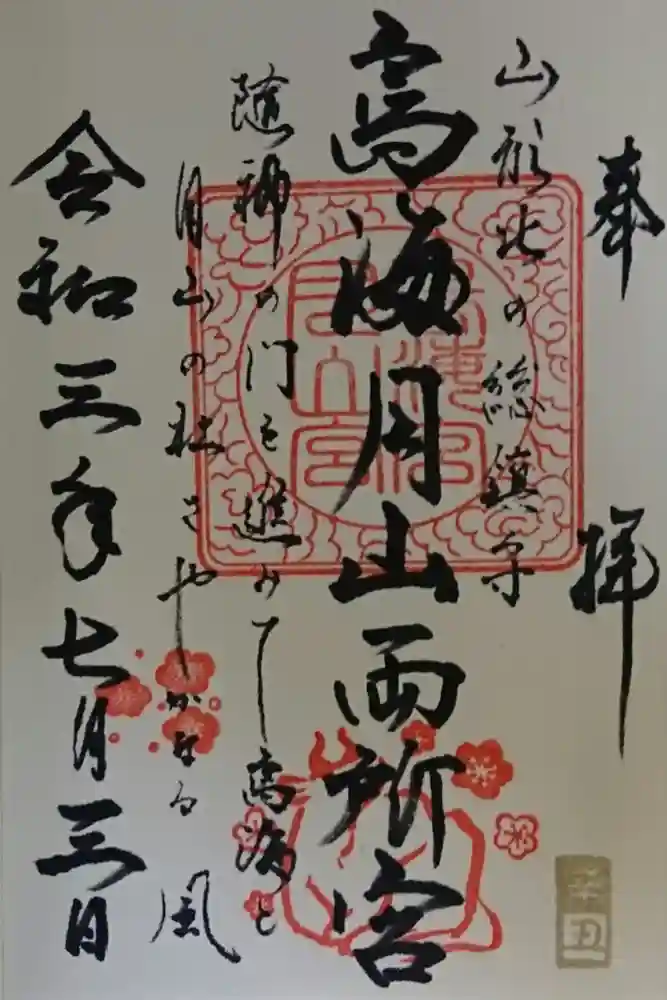 奉拝
山形北の総鎮守
鳥海月山両所宮
随神の門を進みて鳥海と
月山の社さやしかなる風
令和三年七月三日
鳥海宮
月山宮
辛丑